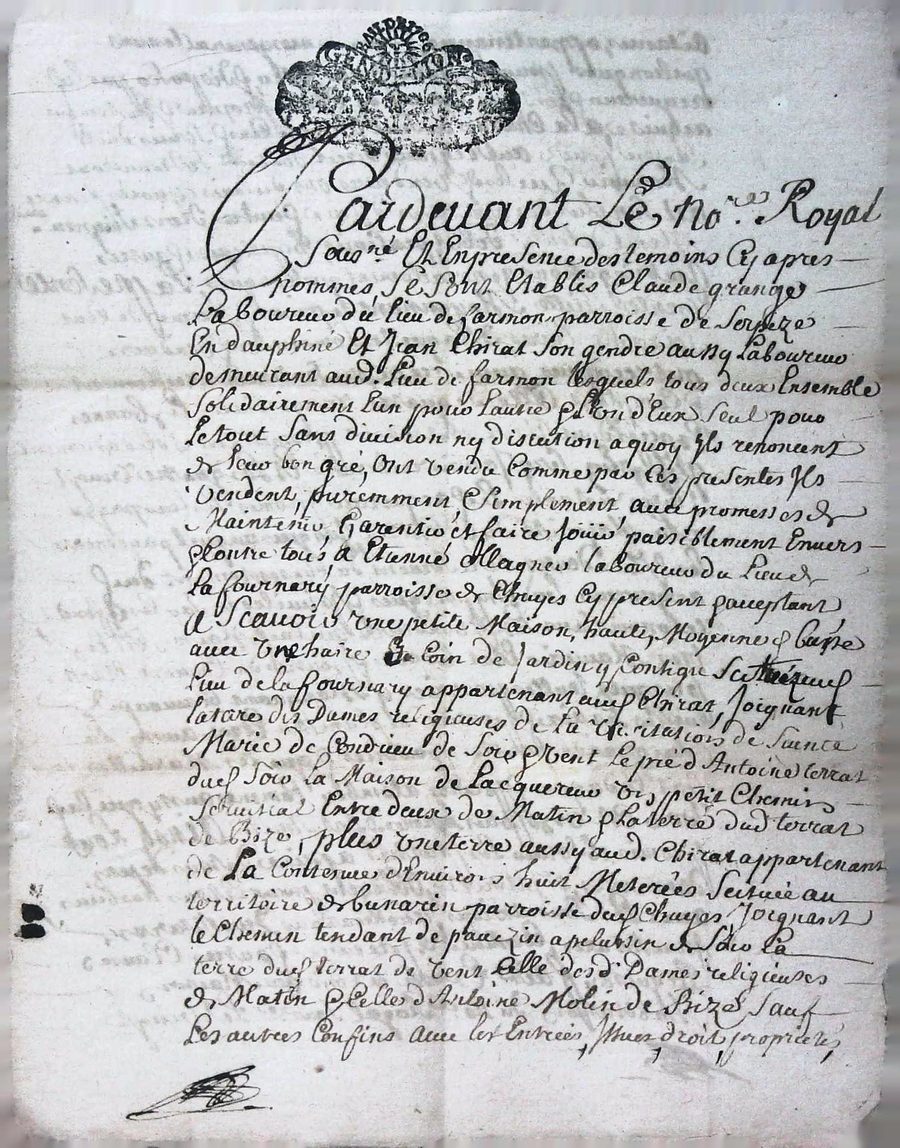 GEN DE LION
Pardevant Le no.re Royal
Sousné Et Enpresence des temoins Cy apres
nommes Se Sont Etablis Claude grange
Laboureur du lieu de farmon parroisse de Serpeze
En dauphiné Et Jean Chirat Son gendre aussy Laboureur
demeurant aud. Lieu de farmon lesquels tous deux Ensemble
Solidairement L'un pour L'autre & L'un d'Eux Seul pour
Le tout Sans division ny discution a quoy Ils renoncent
de Leur bon gré, Ont vendu Comme par Ces presentes Ils
vendent, puremment, & Simplement aux promesses de
Maintenir Garentir et faire Jouir paisiblement Envers
& Contre tous a Etienne Allagner laboureur du Lieu de
La fournary parroisse de Chuyes Cy present & aceptant
A Scavoir une petite Maison, haute, Moyenne & basse
avec un haire Coin de Jardin y Contigue
Lieu de la fournary appartenant aud Chirat, Joignant
la terre des Dames religieuses de La Visitation de Sainte
Marie de Condrieu de Soir & vent Le pré d'Antoine terrat
dud Soir La Maison de Lacquereur un petit Chemin
Servitial Entre deux de Matin & La terre dud terrat
de Bize, plus une terre aussy aud. Chirat appartenant
de La Contenue d'Environ huit Meterées Scituée au
territoire de bunarin parroisse dud Chuyes Joignant
le Chemin tendant de pavezin a pelussin de Soir La
terre dud terrat de vent Celle des d. Dames religieuses
de Matin & Celle d'Antoine Molin de Bize Sauf
Les autres Confins avec Les Entrées, Issues droit, proprietés,